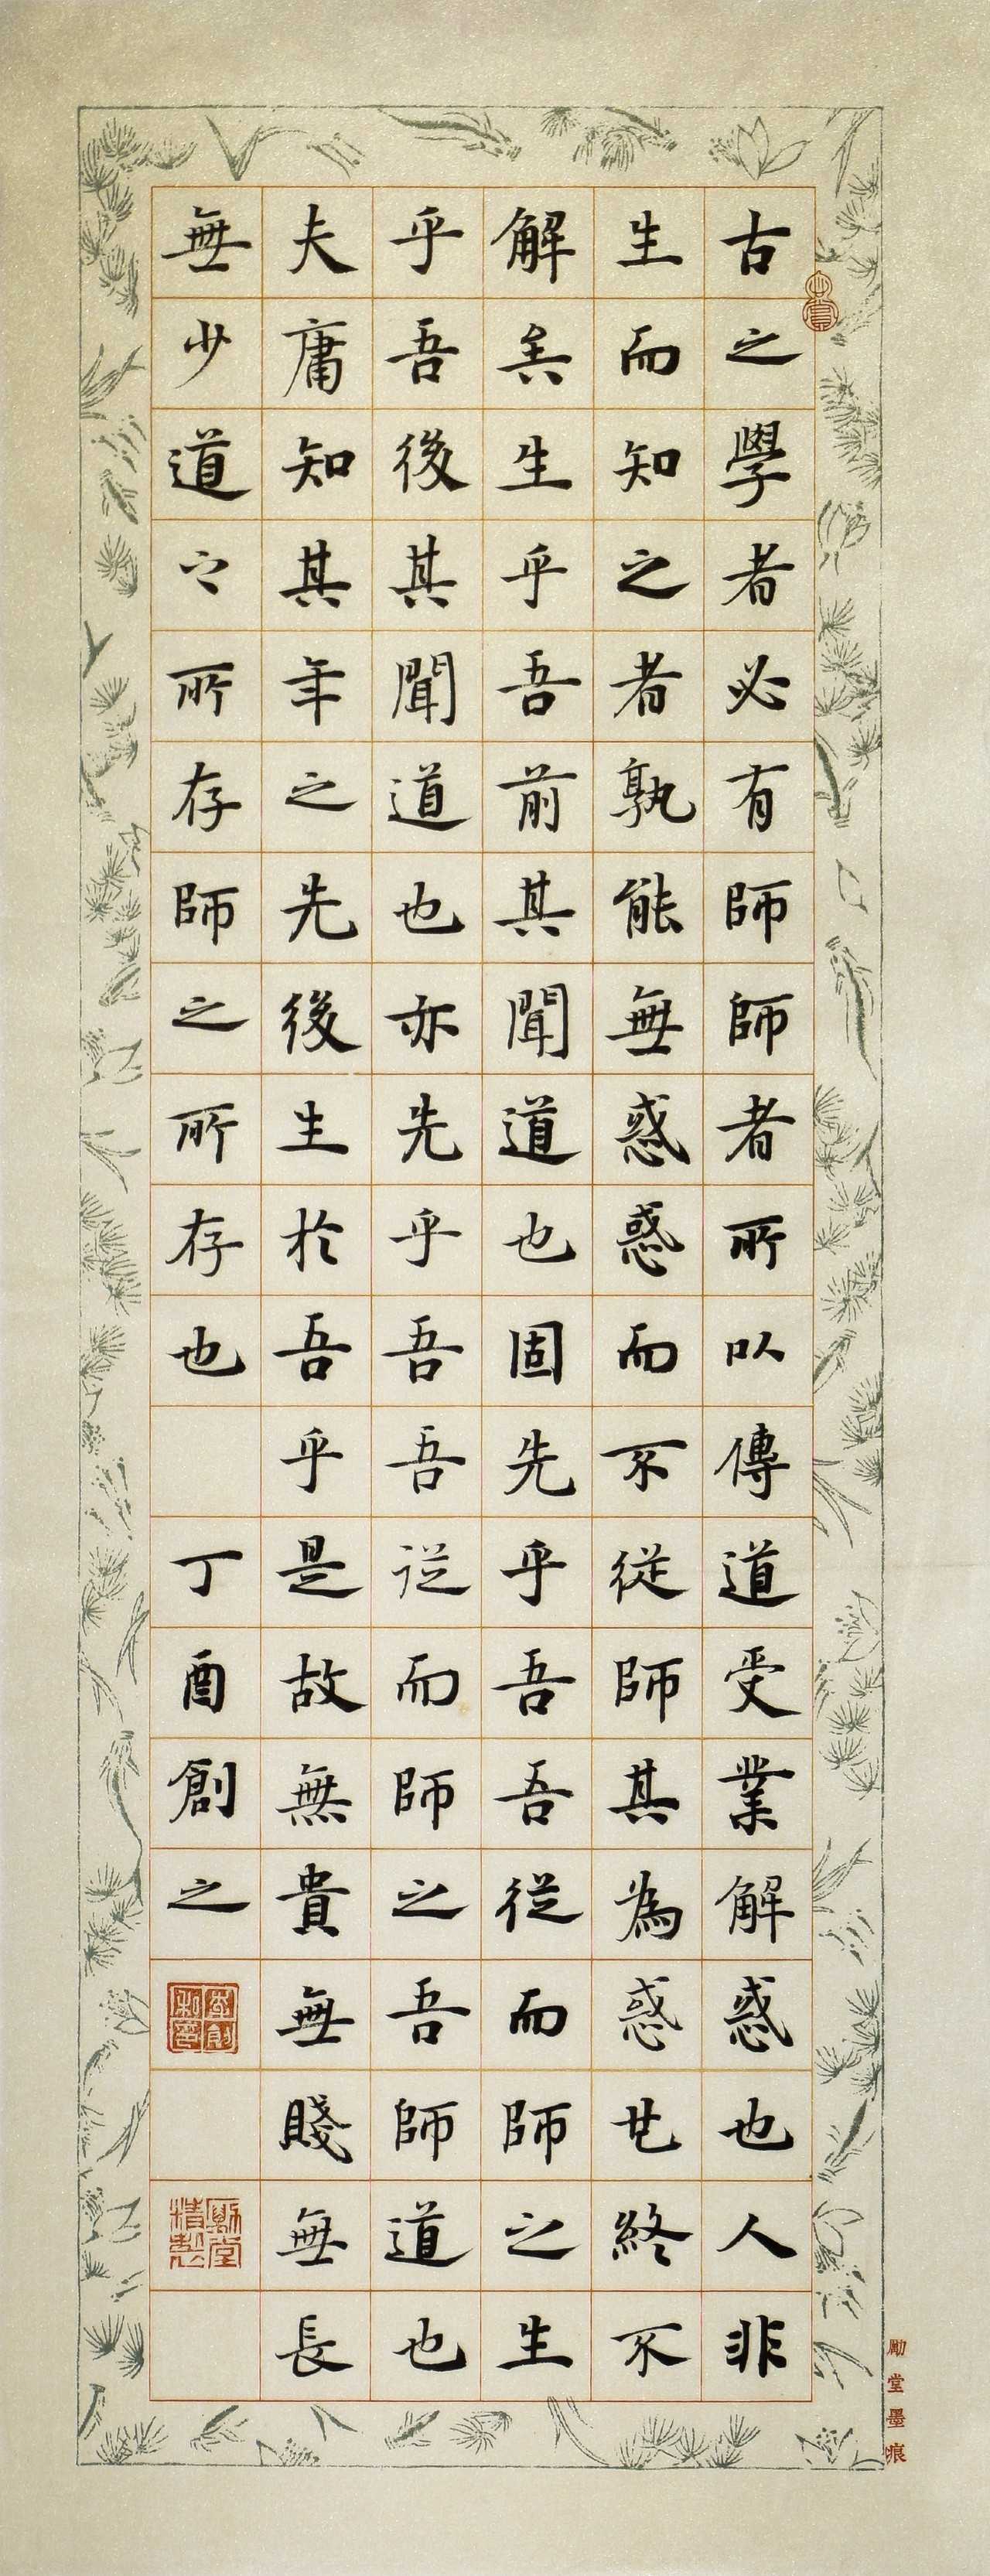 古之學者必有師師者所以傳道受業解惑也人非
生而知之者孰能無惑惑而不從師其為惑也終不
解矣生乎吾前其聞道也固先乎吾吾從而師之生
乎吾後其聞道也亦先乎吾吾從而師之吾師道也
夫庸知其年之先後生於吾乎是故無貴無賤無長
無少道之所存師之所存也
丁酉創之
勵堂精製
勵堂墨痕